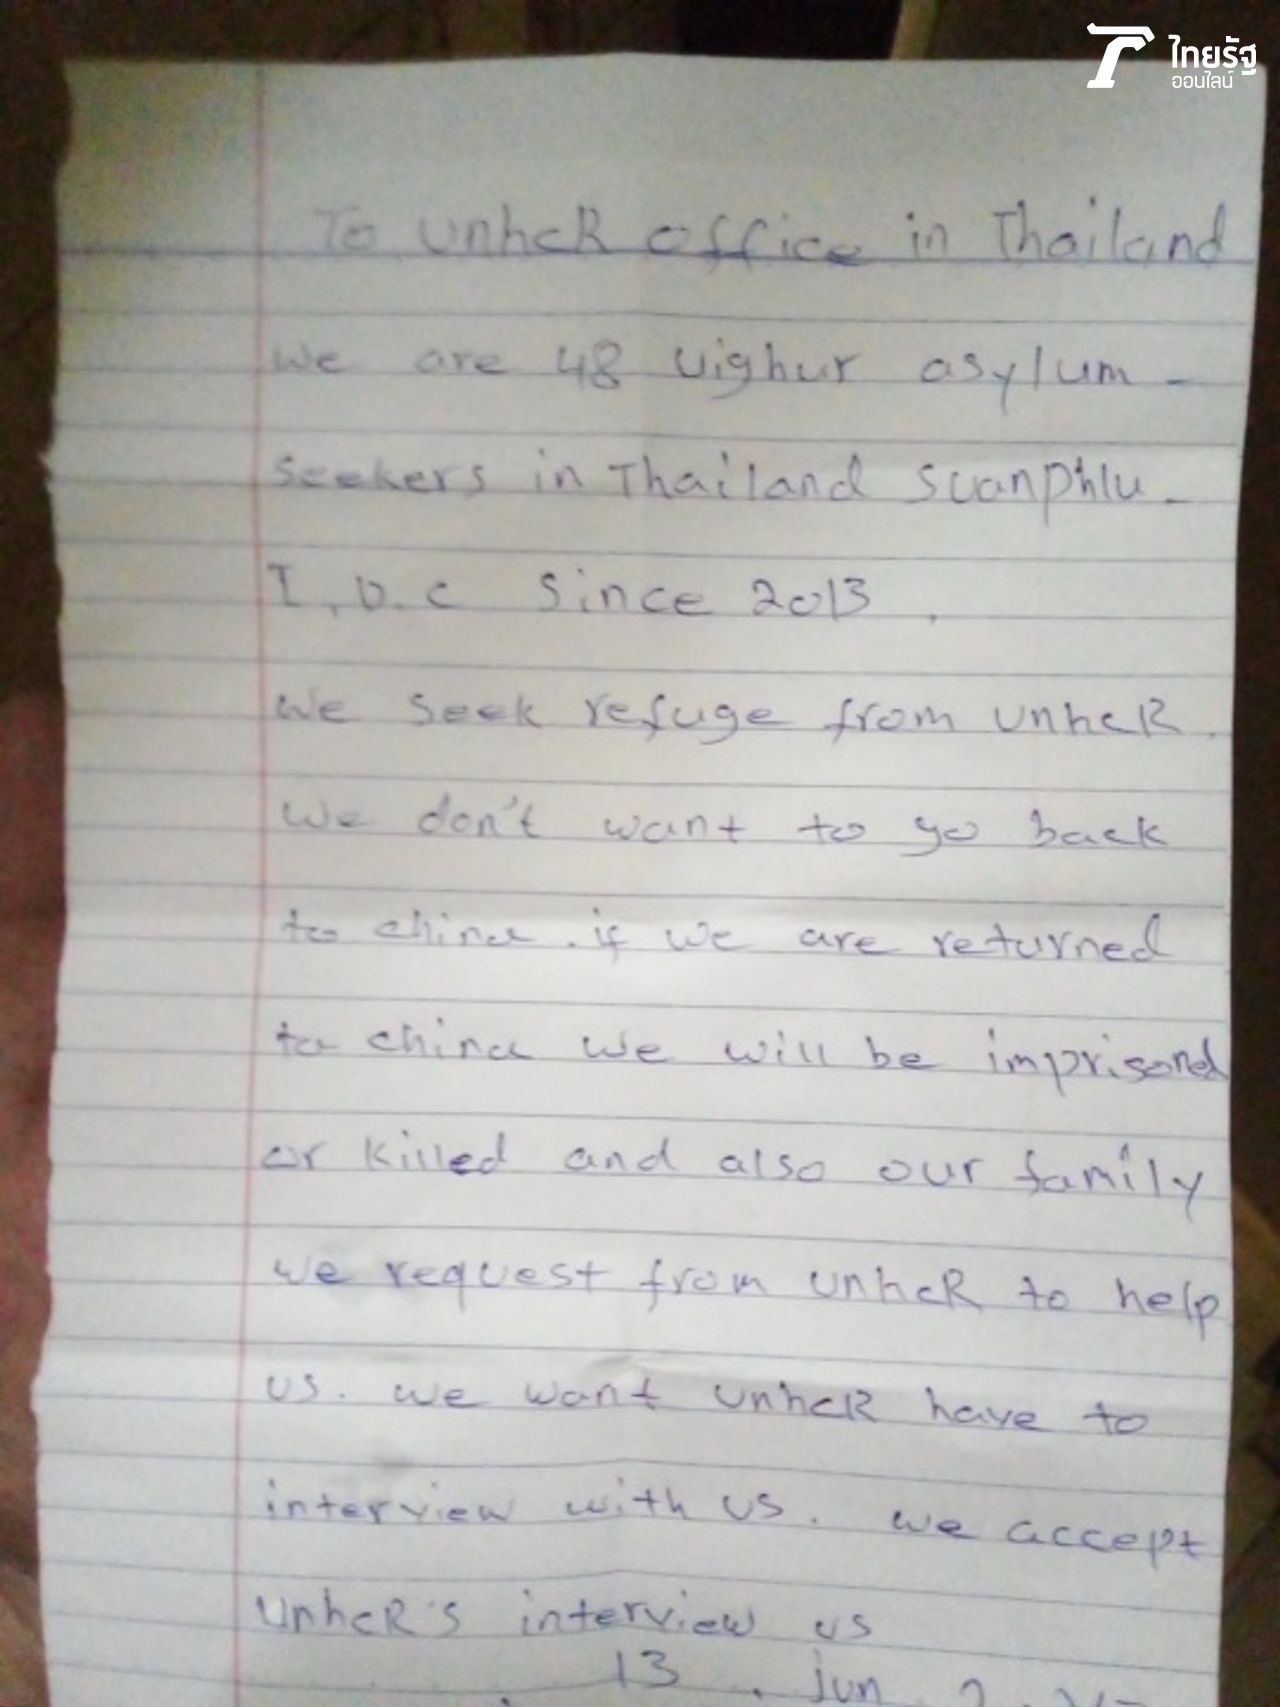 ไทยรัฐ
ออนไลน์
To UnhcR office in Thailand
we are 48 uighur asylum -
seekers in Thailand suanphlu -
I.D.C since 2013 .
we seek refuge from UnhcR .
we don't want to go back
to china . if we are returned
to china we will be imprisoned
or killed and also our family
we request from UnhcR to help
us. we want UnhcR have to
interview with us. we accept
UnhcR's interview us
13 . jun